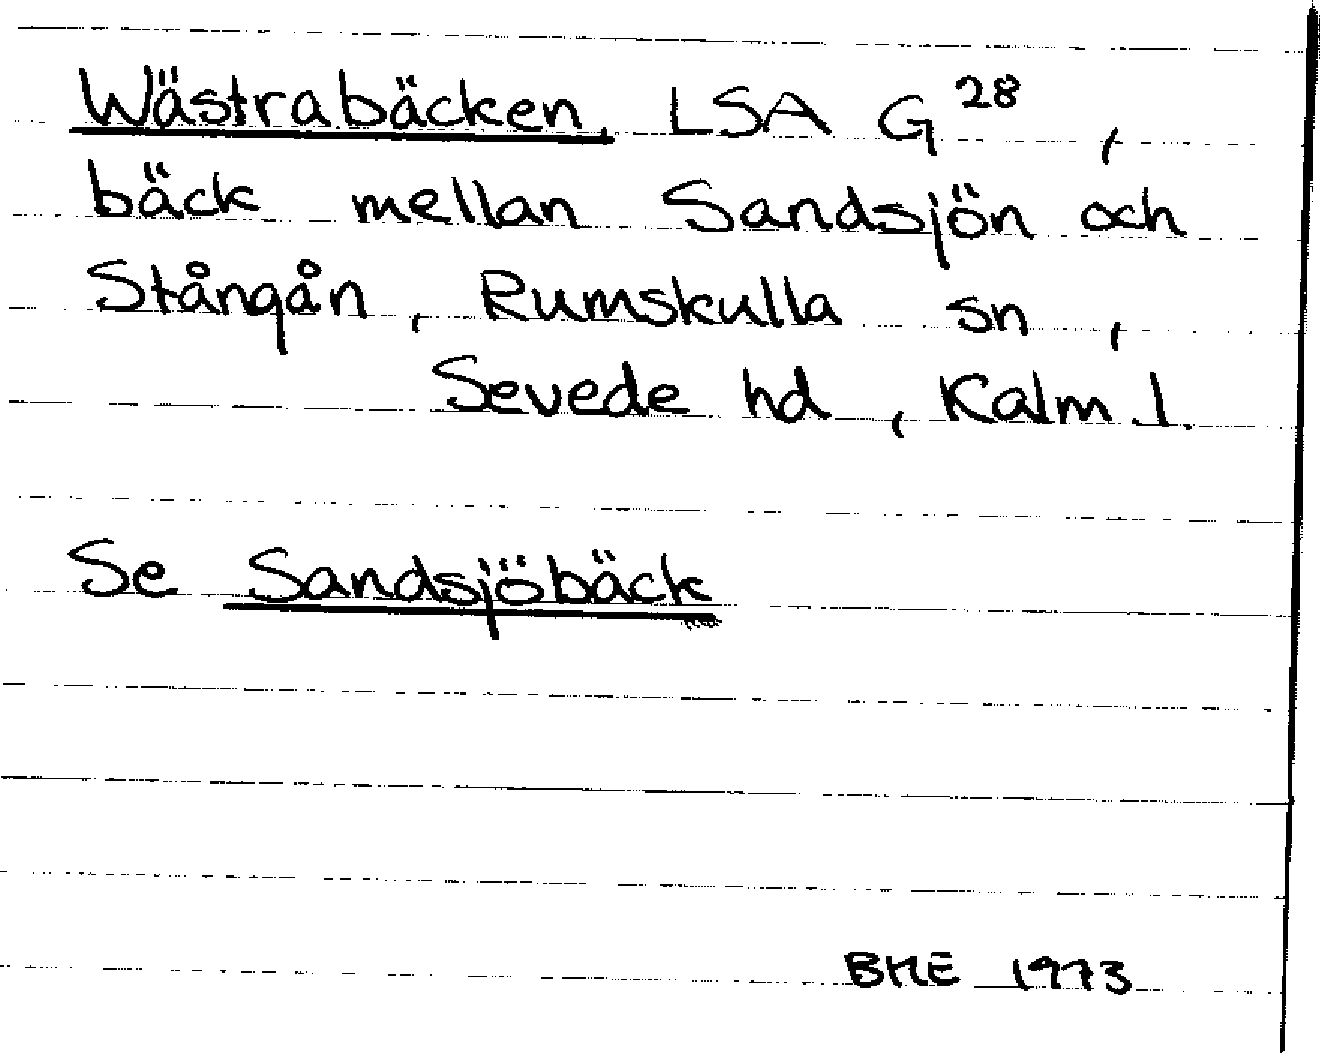 Wästrabäcken, LSA G28,
bäck mellan Sandsjön och
Stångån, Rumskulla sn,
Sevede hd, Kalm l.
Se Sandsjöbäck
BME 1973